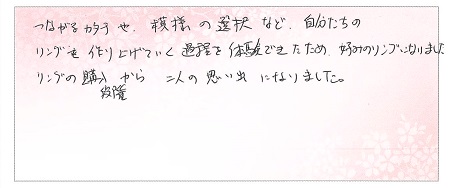 つながるカタチや、模様の選択など、自分たちの
リングを作り上げていく過程を体験できたため、好みのリングになりました
リングの購入から二人の思い出になりました。
段階